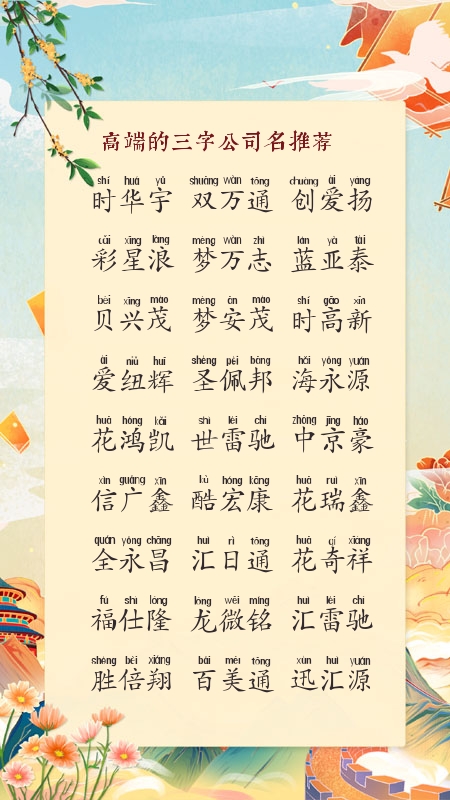 高端的三字公司名推荐
shí huá yǔ shuāng wàn tōng chuàng ài yáng
时华宇 双万通 创爱扬
cǎi xīng làng mèng wàn zhì lán yà tài
彩星浪 梦万志 蓝亚泰
bèi xīng mào mèng ān mào shí gāo xīn
贝兴茂 梦安茂 时高新
ài niǔ huī shèng pèi bāng hǎi yǒng yuán
爱纽辉 圣佩邦 海永源
huā hóng kǎi shì léi chí zhōng jīng háo
花鸿凯 世雷驰 中京豪
xìn guǎng xīn kù hóng kāng huā ruì xīn
信广鑫 酷宏康 花瑞鑫
quán yǒng chāng huì rì tōng huā qí xiáng
全永昌 汇日通 花奇祥
fú shì lóng lóng wēi míng huì léi chí
福仕隆 龙微铭 汇雷驰
shèng bèi xiáng bǎi měi tōng xùn huì yuán
胜倍翔 百美通 迅汇源